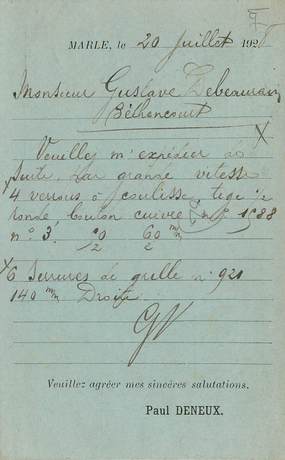 MARLE, le 20 Juillet 1928
Monsieur Gustave Debeauvais
Béthencourt
Veuillez m'expédier de
suite par grande vitesse
4 verrous à coulisse, tige ½
ronde, bouton cuivre, n° 1588
n° 3. 60 m/m
6 Serrures de grille n° 921
140 m/m Droite
GV
Veuillez agréer mes sincères salutations.
Paul DENEUX.